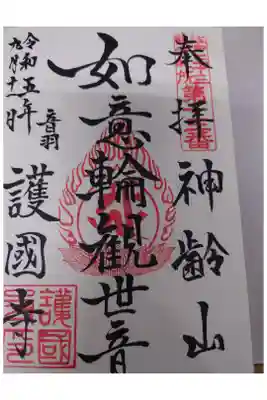 奉拝 神齢山
如意輪観世音
音羽 護國寺
令和五年
九月十一日
護國